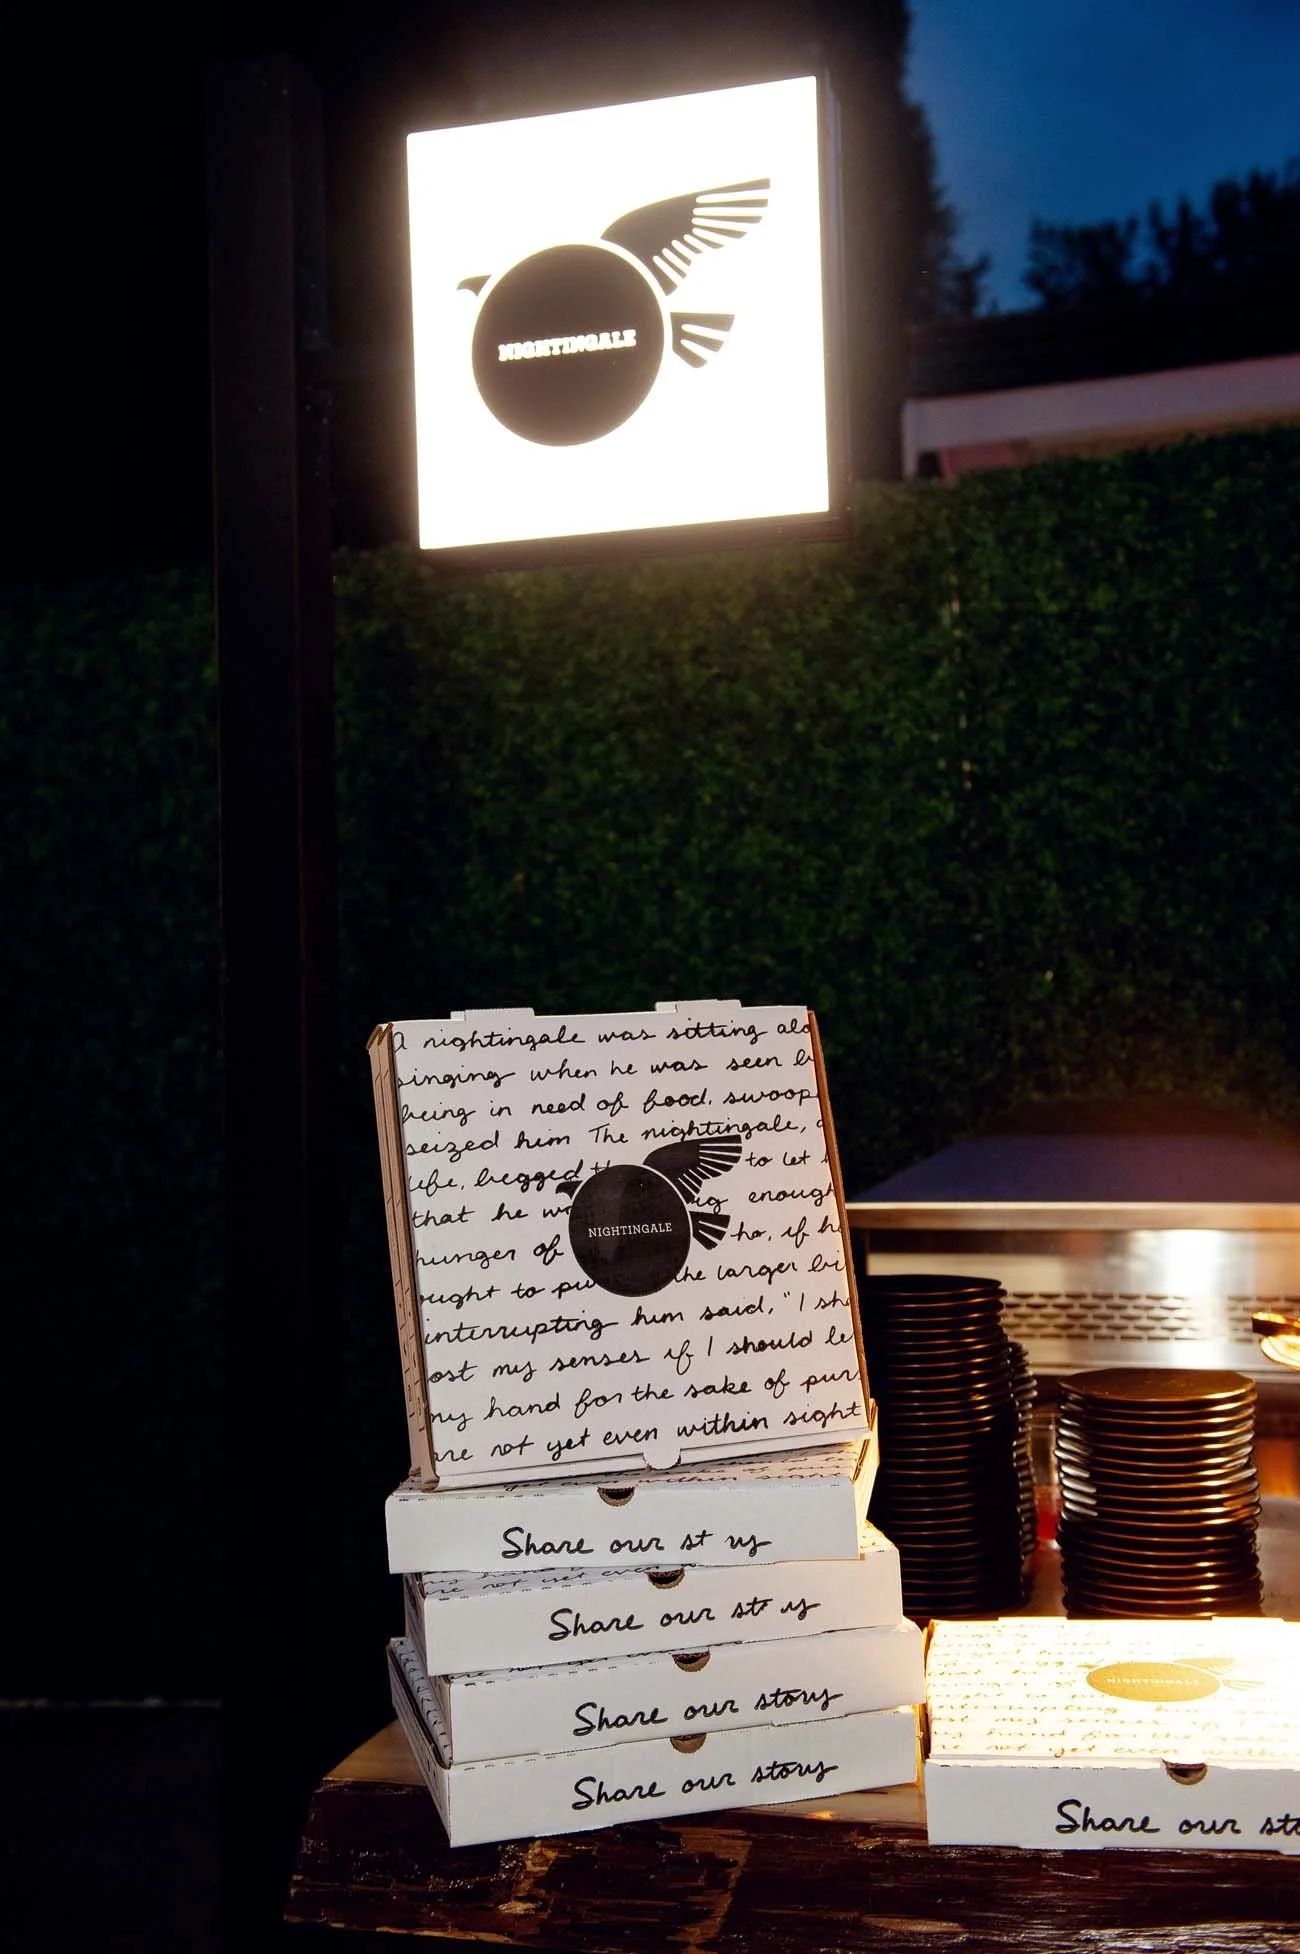 NIGHTINGALE
A nightingale was sitting alo
singing when he was seen b
being in need of food, swoop
seized him The nightingale,
life, begged to let
that he enough
hunger of ho, if h
NIGHTINGALE
ought to the larger bi
interrupting him said, "I sh
ost my senses if I should le
my hand for the sake of pur
are not yet even within sight
Share our st ry
Share our st ry
Share our story
Share our story
NIGHTINGALE
Share our sto